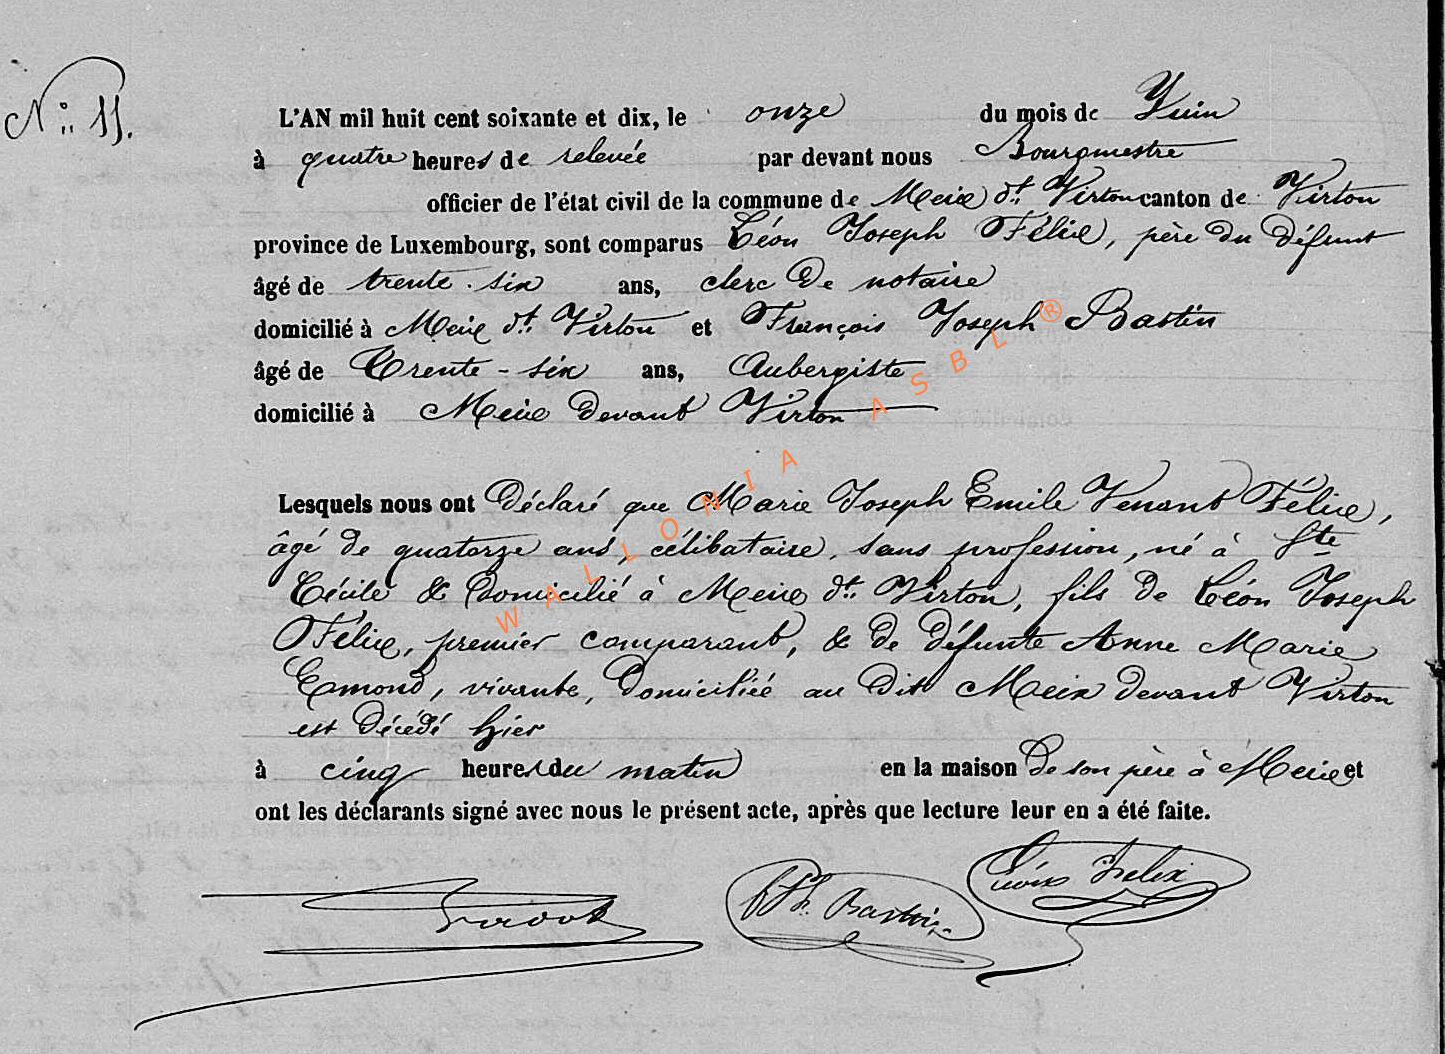 N° 11.
L'AN mil huit cent soixante et dix, le onze du mois de Juin
à quatre heures de relevée par devant nous Bourgmestre
officier de l'état civil de la commune de Meix dt. Virton canton de Virton
province de Luxembourg, sont comparus Léon Joseph Félix, père du défunt
âgé de trente-six ans, clerc de notaire
domicilié à Meix dt. Virton et François Joseph Bastin
âgé de Trente-six ans, Aubergiste
domicilié à Meix devant Virton
Lesquels nous ont déclaré que Marie Joseph Emile Venant Félix,
âgé de quatorze ans, célibataire, sans profession, né à Ste
Cécile & domicilié à Meix dt. Virton, fils de Léon Joseph
Félix, premier comparant, & de défunte Anne Marie
Emond, vivante, domiciliée au dit Meix devant Virton
est décédé hier
à cinq heures du matin en la maison de son père à Meix et
ont les déclarants signé avec nous le présent acte, après que lecture leur en a été faite.
Bastin
Léon Félix
WALLONIA ASBL ®